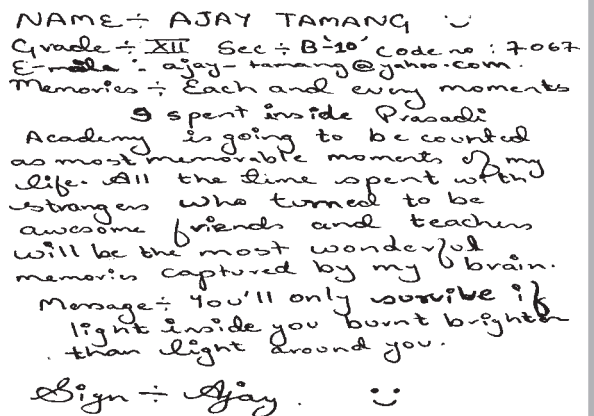 NAME ÷ AJAY TAMANG
Grade ÷ XII Sec ÷ B-'10' Code no : 7067
E-mail : ajay-tamang@yahoo.com.
Memories ÷ Each and every moments
I spent inside Prasadi
Academy is going to be counted
as most memorable moments of my
life. All the time spent with
strangers who turned to be
awesome friends and teachers
will be the most wonderful
memories captured by my brain.
Message ÷ You'll only survive if
light inside you burnt brighter
than light around you.
Sign ÷ Ajay.